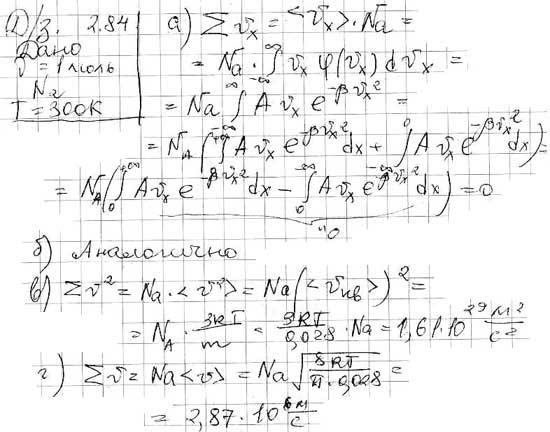 Д/з. 2.84
Дано
ν = 1 моль
N₂
T = 300K
а) Σ vₓ = <vₓ>·Nа =
= Nа · ∫_{-∞}^{∞} vₓ φ(vₓ) dvₓ =
= Nа ∫_{-∞}^{+∞} A vₓ e^{-βvₓ²} =
= N_A (∫_{0}^{+∞} A vₓ e^{-βvₓ²} dx + ∫_{-∞}^{0} A vₓ e^{-βvₓ²} dx) =
= N_A (∫_{0}^{+∞} A vₓ e^{-βvₓ²} dx − ∫_{0}^{-∞} A vₓ e^{-βvₓ²} dx) = 0
"0
б) Аналогично
в) Σ v² = Nа · <v²> = Nа (<v_кв>)² =
= N_A · 3RT/m = 3RT/0,028 · Nа = 1,61·10²⁹ м²/с²
г) Σ v = Nа <v> = Nа √(8RT/π·0,028) =
= 2,87·10 м/с